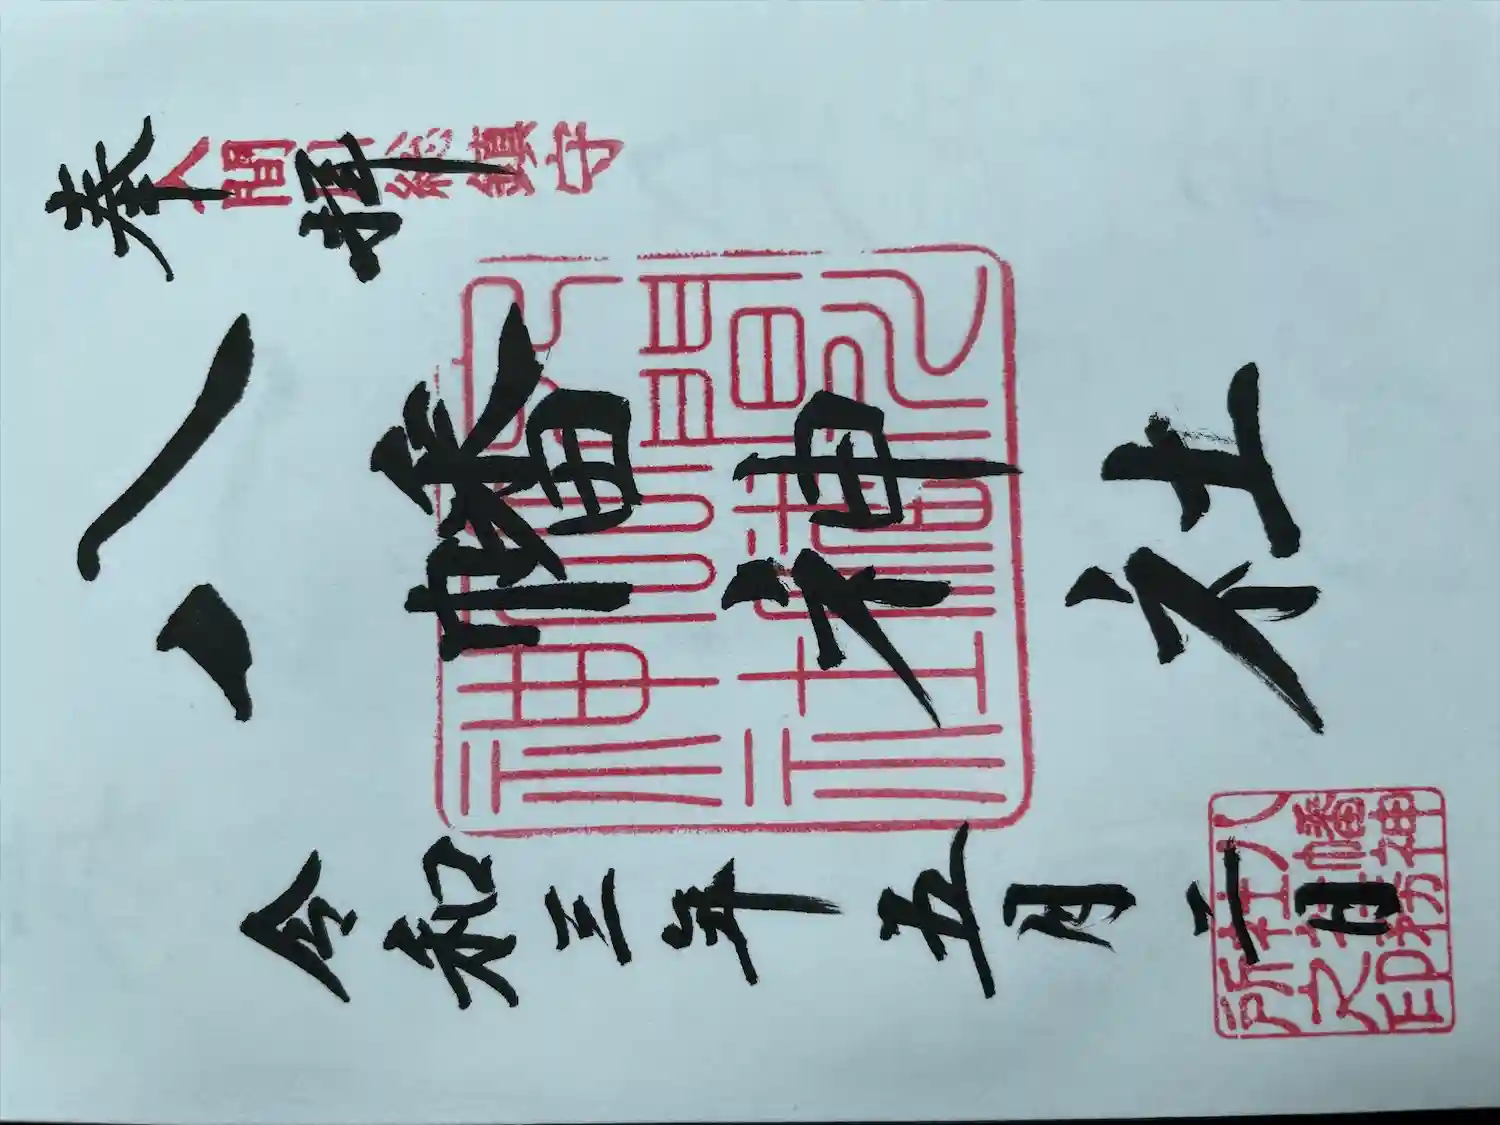 奉拝
入間川総鎮守
八幡神社
令和三年五月二日
八幡神
社社務
所之印